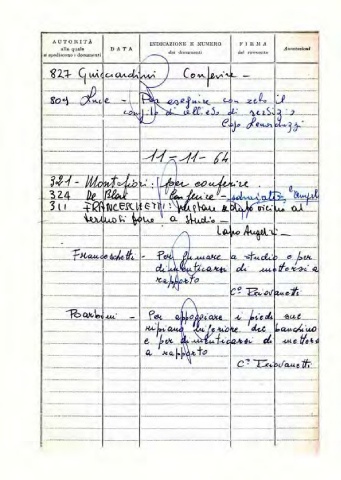 AUTORITÀ
alla quale
si spediscono i documenti
DATA
INDICAZIONE E NUMERO
dei documenti
FIRMA
del ricevente
Annotazioni
827 Guicciardini Conferire -
809 Luce - Per eseguire con zelo il
compito di allievo di servizio
Capo
11=11-64
321 - Montefiori: per conferire
324 De Blasi Conferire -
311 FRANCESCHETTI: vicino al
a studio -
Lapo Angel
Franceschetti - Per fumare a studio e per
dimenticarsi di mettersi a
rapporto
C°
Barbini - Per appoggiare i piedi sul
ripiano inferiore del banchino
e per dimenticarsi di mettersi
a rapporto
C°